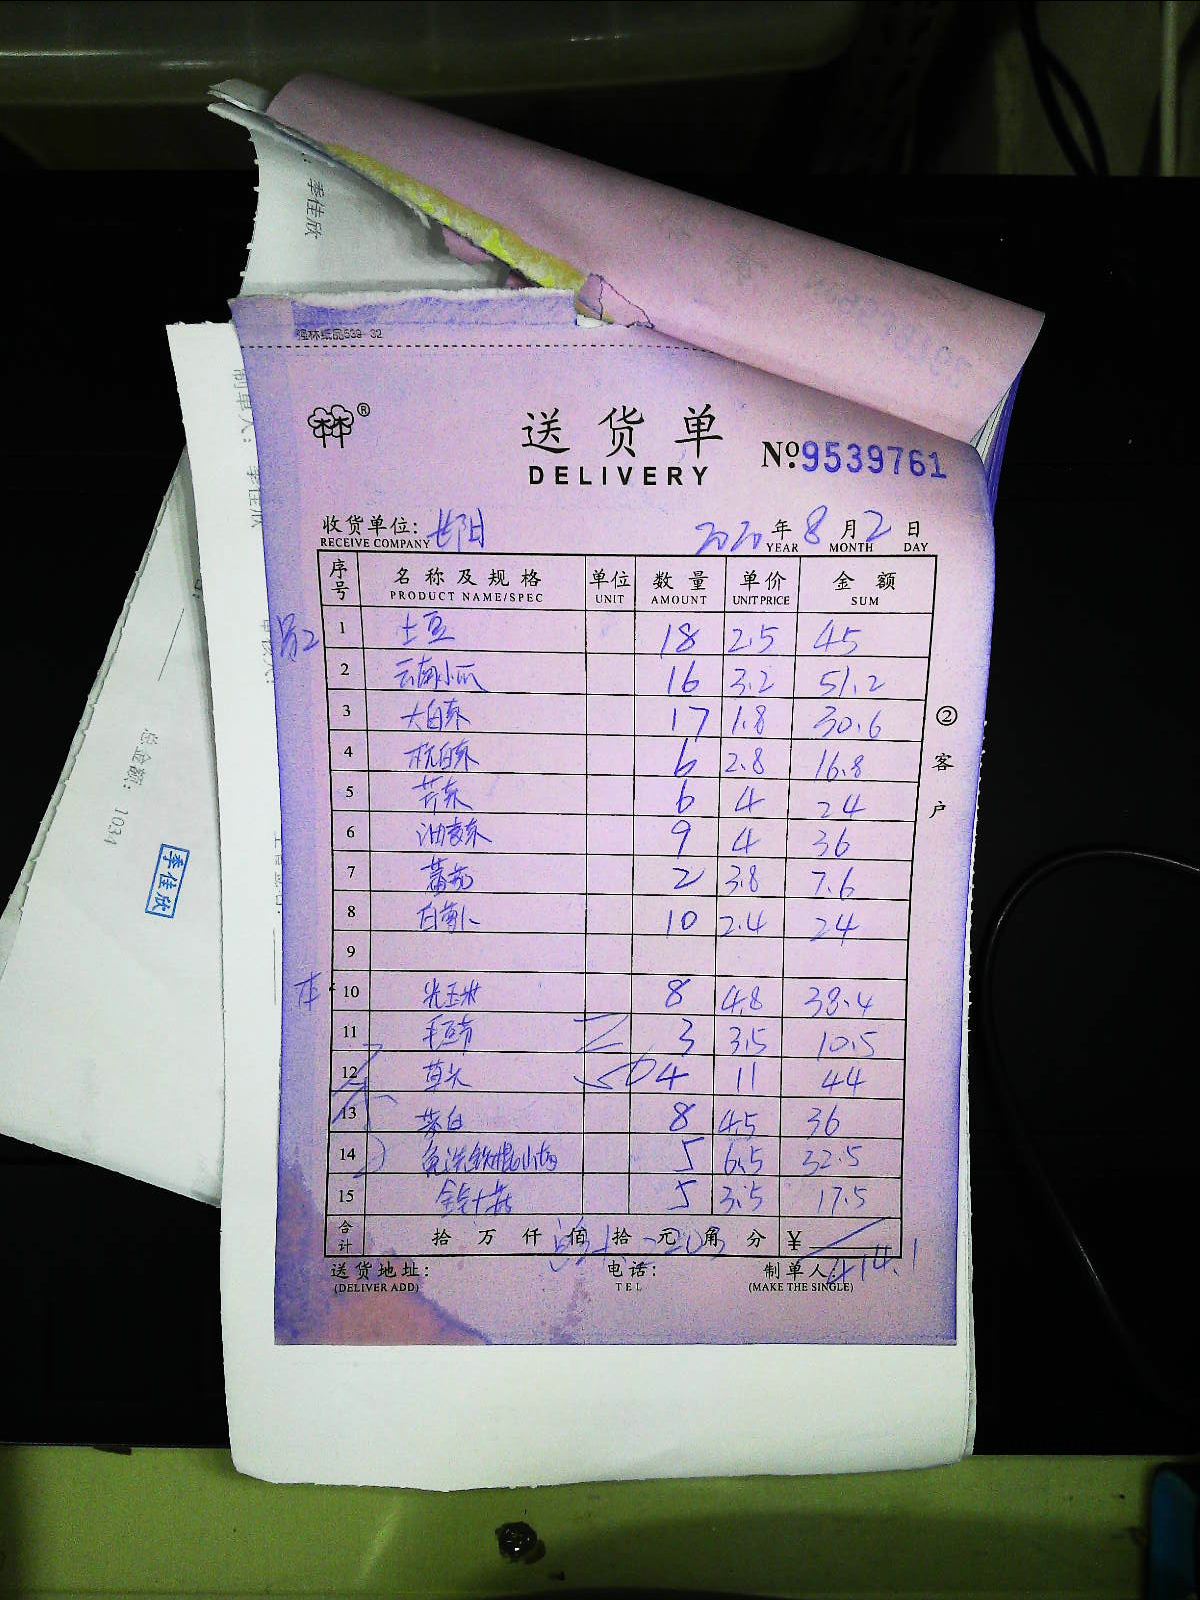 季佳欣
强林纸品539-32
林林®
送货单
DELIVERY
Nº.9539761
收货单位: 长阳
RECEIVE COMPANY
2020年8月2日
YEAR MONTH DAY
序号 名称及规格 单位 数量 单价 金额
PRODUCT NAME/SPEC UNIT AMOUNT UNIT PRICE SUM
1 土豆 18 2.5 45
2 云南小瓜 16 3.2 51.2
3 大白菜 17 1.8 30.6
4 杭白菜 6 2.8 16.8
5 芹菜 6 4 24
6 油麦菜 9 4 36
7 蕃茄 2 3.8 7.6
8 白萝卜 10 2.4 24
9
10 光玉米 8 4.8 38.4
11 毛豆节 3 3.5 10.5
12 草头 4 11 44
13 茭白 8 4.5 36
14 免洗铁棍山药 5 6.5 32.5
15 金针菇 5 3.5 17.5
合计 拾 万 仟 佰 拾 元 角 分 ¥ 414.1
送货地址: 电话: 制单人:
(DELIVER ADD) TEL (MAKE THE SINGLE)
②客户
制单人: 季佳欣
总金额: 1034
季佳欣